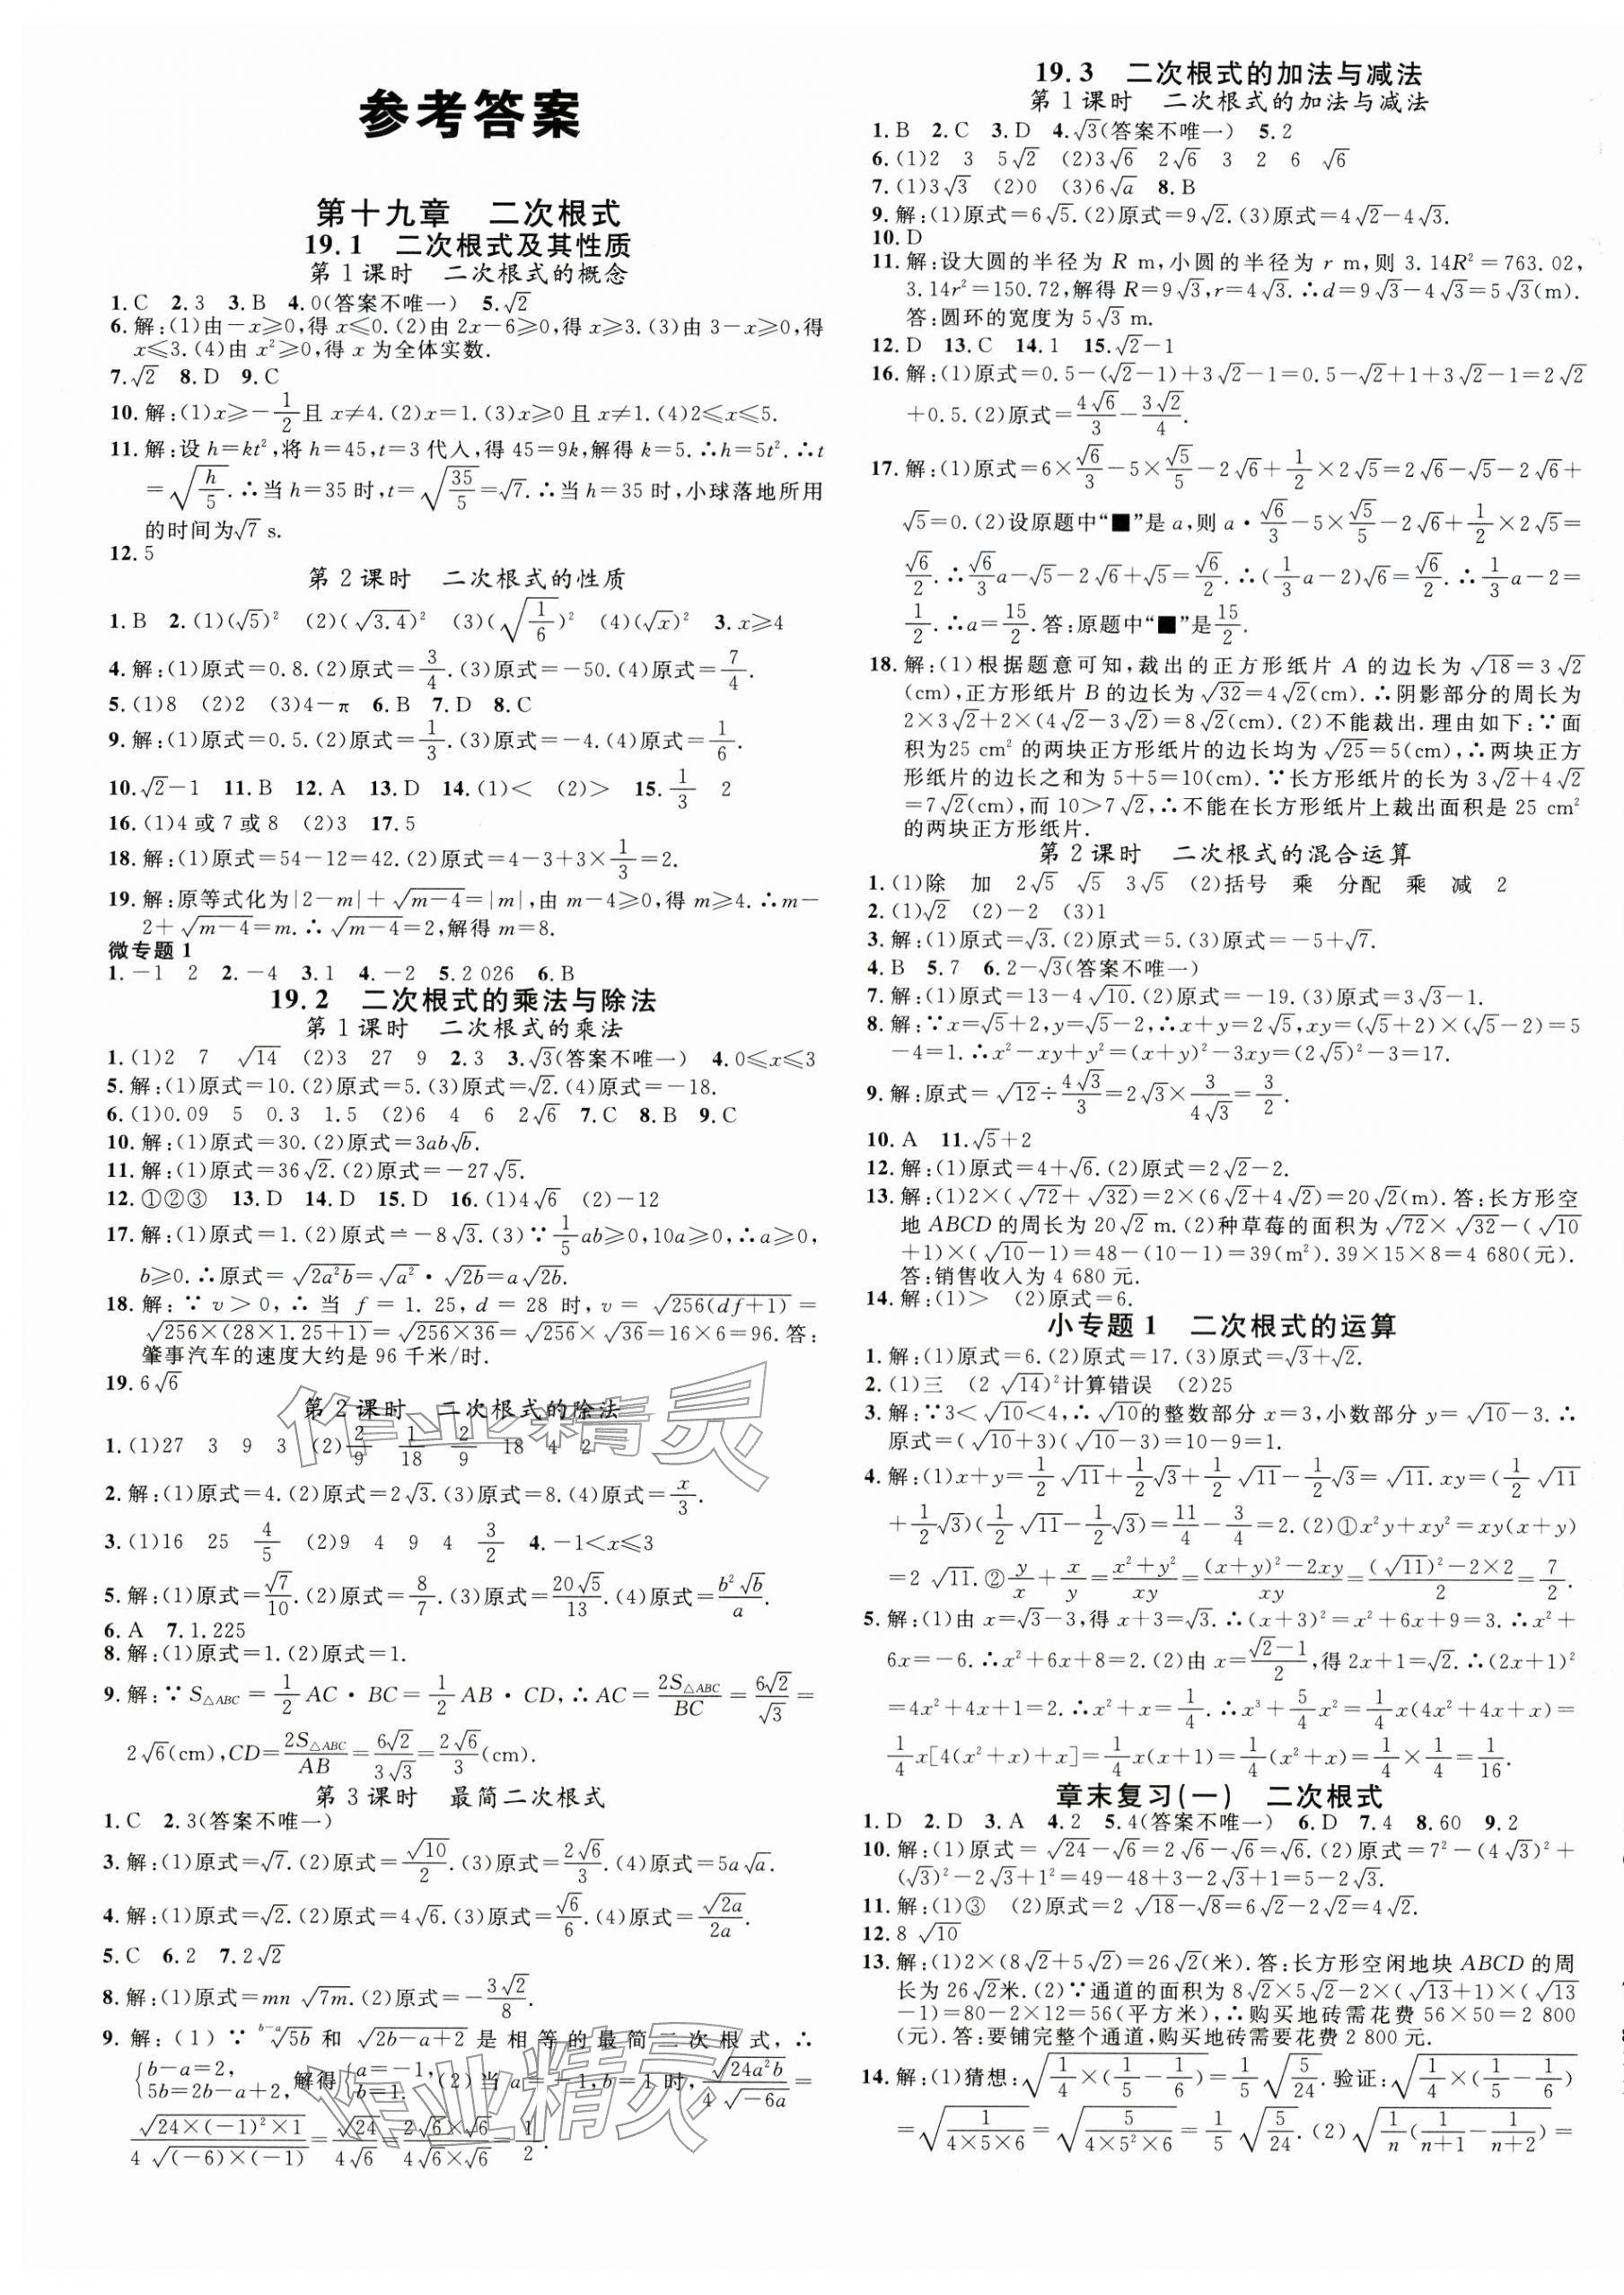 参考答案
第十九章　二次根式
19.1　二次根式及其性质
第1课时　二次根式的概念
1.C　2.3　3.B　4.0(答案不唯一)　5.√2
6.解:(1)由－x≥0,得 x≤0.(2)由 2x－6≥0,得 x≥3.(3)由 3－x≥0,得
x≤3.(4)由 x²≥0,得 x 为全体实数.
7.√2　8.D　9.C
10.解:(1)x≥－1/2且 x≠4.(2)x＝1.(3)x≥0 且 x≠1.(4)2≤x≤5.
11.解:设 h＝kt²,将 h＝45,t＝3 代入,得 45＝9k,解得 k＝5.∴h＝5t².∴t
＝√(h/5).∴当 h＝35 时,t＝√(35/5)＝√7.∴当 h＝35 时,小球落地所用
的时间为√7 s.
12.5
第2课时　二次根式的性质
1.B　2.(1)(√5)²　(2)(√3.4)²　(3)(√(1/6))²　(4)(√x)²　3.x≥4
4.解:(1)原式＝0.8.(2)原式＝3/4.(3)原式＝－50.(4)原式＝7/4.
5.(1)8　(2)2　(3)4－π　6.B　7.D　8.C
9.解:(1)原式＝0.5.(2)原式＝1/3.(3)原式＝－4.(4)原式＝1/6.
10.√2－1　11.B　12.A　13.D　14.(1)＜　(2)＞　15.1/3　2
16.(1)4 或 7 或 8　(2)3　17.5
18.解:(1)原式＝54－12＝42.(2)原式＝4－3＋3×1/3＝2.
19.解:原等式化为|2－m|＋√(m－4)＝|m|,由 m－4≥0,得 m≥4.∴m－
2＋√(m－4)＝m.∴√(m－4)＝2,解得 m＝8.
微专题1
1.－1　2　2.－4　3.1　4.－2　5.2 026　6.B
19.2　二次根式的乘法与除法
第1课时　二次根式的乘法
1.(1)2　7　√14　(2)3　27　9　2.3　3.√3(答案不唯一)　4.0≤x≤3
5.解:(1)原式＝10.(2)原式＝5.(3)原式＝√2.(4)原式＝－18.
6.(1)0.09　5　0.3　1.5　(2)6　4　6　2√6　7.C　8.B　9.C
10.解:(1)原式＝30.(2)原式＝3ab√b.
11.解:(1)原式＝36√2.(2)原式＝－27√5.
12.①②③　13.D　14.D　15.D　16.(1)4√6　(2)－12
17.解:(1)原式＝1.(2)原式＝－8√3.(3)∵1/5ab≥0,10a≥0,∴a≥0,
b≥0.∴原式＝√(2a²b)＝√a²·√(2b)＝a√(2b).
18.解:∵v＞0,∴当 f＝1.25,d＝28 时,v＝√(256(df＋1))＝
√(256×(28×1.25＋1))＝√(256×36)＝√256×√36＝16×6＝96.答:
肇事汽车的速度大约是 96 千米/时.
19.6√6
第2课时　二次根式的除法
1.(1)27　3　9　3　(2)2/9　1/18　2/9　18　4　2
2.解:(1)原式＝4.(2)原式＝2√3.(3)原式＝8.(4)原式＝x/3.
3.(1)16　25　4/5　(2)9　4　9　4　3/2　4.－1＜x≤3
5.解:(1)原式＝√7/10.(2)原式＝8/7.(3)原式＝20√5/13.(4)原式＝b²√b/a.
6.A　7.1.225
8.解:(1)原式＝1.(2)原式＝1.
9.解:∵S△ABC＝1/2 AC·BC＝1/2 AB·CD,∴AC＝2S△ABC/BC＝6√2/√3＝
2√6(cm),CD＝2S△ABC/AB＝6√2/3√3＝2√6/3(cm).
第3课时　最简二次根式
1.C　2.3(答案不唯一)
3.解:(1)原式＝√7.(2)原式＝√10/2.(3)原式＝2√6/3.(4)原式＝5a√a.
4.解:(1)原式＝√2.(2)原式＝4√6.(3)原式＝√6/6.(4)原式＝√(2a)/2a.
5.C　6.2　7.2√2
8.解:(1)原式＝mn√(7m).(2)原式＝－3√2/8.
9.解:(1)∵ᵇ⁻ᵃ√(5b) 和 √(2b－a＋2) 是相等的最简二次根式,∴
{b－a＝2, 5b＝2b－a＋2, 解得{a＝－1, b＝1. (2)当 a＝－1,b＝1 时,√(24a²b)/4√(－6a)＝
√(24×(－1)²×1)/4√((－6)×(－1))＝√24/4√6＝2√6×√6/4√6×√6＝1/2.
19.3　二次根式的加法与减法
第1课时　二次根式的加法与减法
1.B　2.C　3.D　4.√3(答案不唯一)　5.2
6.(1)2　3　5√2　(2)3√6　2√6　3　2　6　√6
7.(1)3√3　(2)0　(3)6√a　8.B
9.解:(1)原式＝6√5.(2)原式＝9√2.(3)原式＝4√2－4√3.
10.D
11.解:设大圆的半径为 R m,小圆的半径为 r m,则 3.14R²＝763.02,
3.14r²＝150.72,解得 R＝9√3,r＝4√3.∴d＝9√3－4√3＝5√3(m).
答:圆环的宽度为 5√3 m.
12.D　13.C　14.1　15.√2－1
16.解:(1)原式＝0.5－(√2－1)＋3√2－1＝0.5－√2＋1＋3√2－1＝2√2
＋0.5.(2)原式＝4√6/3－3√2/4.
17.解:(1)原式＝6×√6/3－5×√5/5－2√6＋1/2×2√5＝2√6－√5－2√6＋
√5＝0.(2)设原题中“■”是 a,则 a·√6/3－5×√5/5－2√6＋1/2×2√5＝
√6/2.∴√6/3a－√5－2√6＋√5＝√6/2.∴(1/3a－2)√6＝√6/2.∴1/3a－2＝
1/2.∴a＝15/2.答:原题中“■”是15/2.
18.解:(1)根据题意可知,裁出的正方形纸片 A 的边长为√18＝3√2
(cm),正方形纸片 B 的边长为√32＝4√2(cm).∴阴影部分的周长为
2×3√2＋2×(4√2－3√2)＝8√2(cm).(2)不能裁出.理由如下:∵面
积为25 cm² 的两块正方形纸片的边长均为√25＝5(cm),∴两块正方
形纸片的边长之和为 5＋5＝10(cm).∵长方形纸片的长为 3√2＋4√2
＝7√2(cm),而 10＞7√2,∴不能在长方形纸片上裁出面积是 25 cm²
的两块正方形纸片.
第2课时　二次根式的混合运算
1.(1)除　加　2√5　√5　3√5　(2)括号　乘　分配　乘　减　2
2.(1)√2　(2)－2　(3)1
3.解:(1)原式＝√3.(2)原式＝5.(3)原式＝－5＋√7.
4.B　5.7　6.2－√3(答案不唯一)
7.解:(1)原式＝13－4√10.(2)原式＝－19.(3)原式＝3√3－1.
8.解:∵x＝√5＋2,y＝√5－2,∴x＋y＝2√5,xy＝(√5＋2)×(√5－2)＝5
－4＝1.∴x²－xy＋y²＝(x＋y)²－3xy＝(2√5)²－3＝17.
9.解:原式＝√12÷4√3/3＝2√3×3/4√3＝3/2.
10.A　11.√5＋2
12.解:(1)原式＝4＋√6.(2)原式＝2√2－2.
13.解:(1)2×(√72＋√32)＝2×(6√2＋4√2)＝20√2(m).答:长方形空
地 ABCD 的周长为 20√2 m.(2)种草莓的面积为√72×√32－(√10
＋1)×(√10－1)＝48－(10－1)＝39(m²).39×15×8＝4 680(元).
答:销售收入为 4 680 元.
14.解:(1)＞　(2)原式＝6.
小专题1　二次根式的运算
1.解:(1)原式＝6.(2)原式＝17.(3)原式＝√3＋√2.
2.(1)三　(2√14)²计算错误　(2)25
3.解:∵3＜√10＜4,∴√10的整数部分 x＝3,小数部分 y＝√10－3.∴
原式＝(√10＋3)(√10－3)＝10－9＝1.
4.解:(1)x＋y＝1/2√11＋1/2√3＋1/2√11－1/2√3＝√11.xy＝(1/2√11
＋1/2√3)(1/2√11－1/2√3)＝11/4－3/4＝2.(2)①x²y＋xy²＝xy(x＋y)
＝2√11.②y/x＋x/y＝(x²＋y²)/xy＝((x＋y)²－2xy)/xy＝((√11)²－2×2)/2＝7/2.
5.解:(1)由 x＝√3－3,得 x＋3＝√3.∴(x＋3)²＝x²＋6x＋9＝3.∴x²＋
6x＝－6.∴x²＋6x＋8＝2.(2)由 x＝(√2－1)/2,得 2x＋1＝√2.∴(2x＋1)²
＝4x²＋4x＋1＝2.∴x²＋x＝1/4.∴x³＋5/4x²＝1/4x(4x²＋4x＋x)＝
1/4x[4(x²＋x)＋x]＝1/4x(x＋1)＝1/4(x²＋x)＝1/4×1/4＝1/16.
章末复习(一)　二次根式
1.D　2.D　3.A　4.2　5.4(答案不唯一)　6.D　7.4　8.60　9.2
10.解:(1)原式＝√24－√6＝2√6－√6＝√6.(2)原式＝7²－(4√3)²＋
(√3)²－2√3＋1²＝49－48＋3－2√3＋1＝5－2√3.
11.解:(1)③　(2)原式＝2√18－√8＝6√2－2√2＝4√2.
12.8√10
13.解:(1)2×(8√2＋5√2)＝26√2(米).答:长方形空闲地块 ABCD 的周
长为 26√2米.(2)∵通道的面积为 8√2×5√2－2×(√13＋1)×(√13
－1)＝80－2×12＝56(平方米),∴购买地砖需花费 56×50＝2 800
(元).答:要铺完整个通道,购买地砖需要花费 2 800 元.
14.解:(1)猜想:√(1/4×(1/5－1/6))＝1/5√(5/24).验证:√(1/4×(1/5－1/6))
＝√(1/(4×5×6))＝√(5/(4×5²×6))＝1/5√(5/24).(2)√(1/n(1/(n＋1)－1/(n＋2)))＝
作业精灵
作业精灵